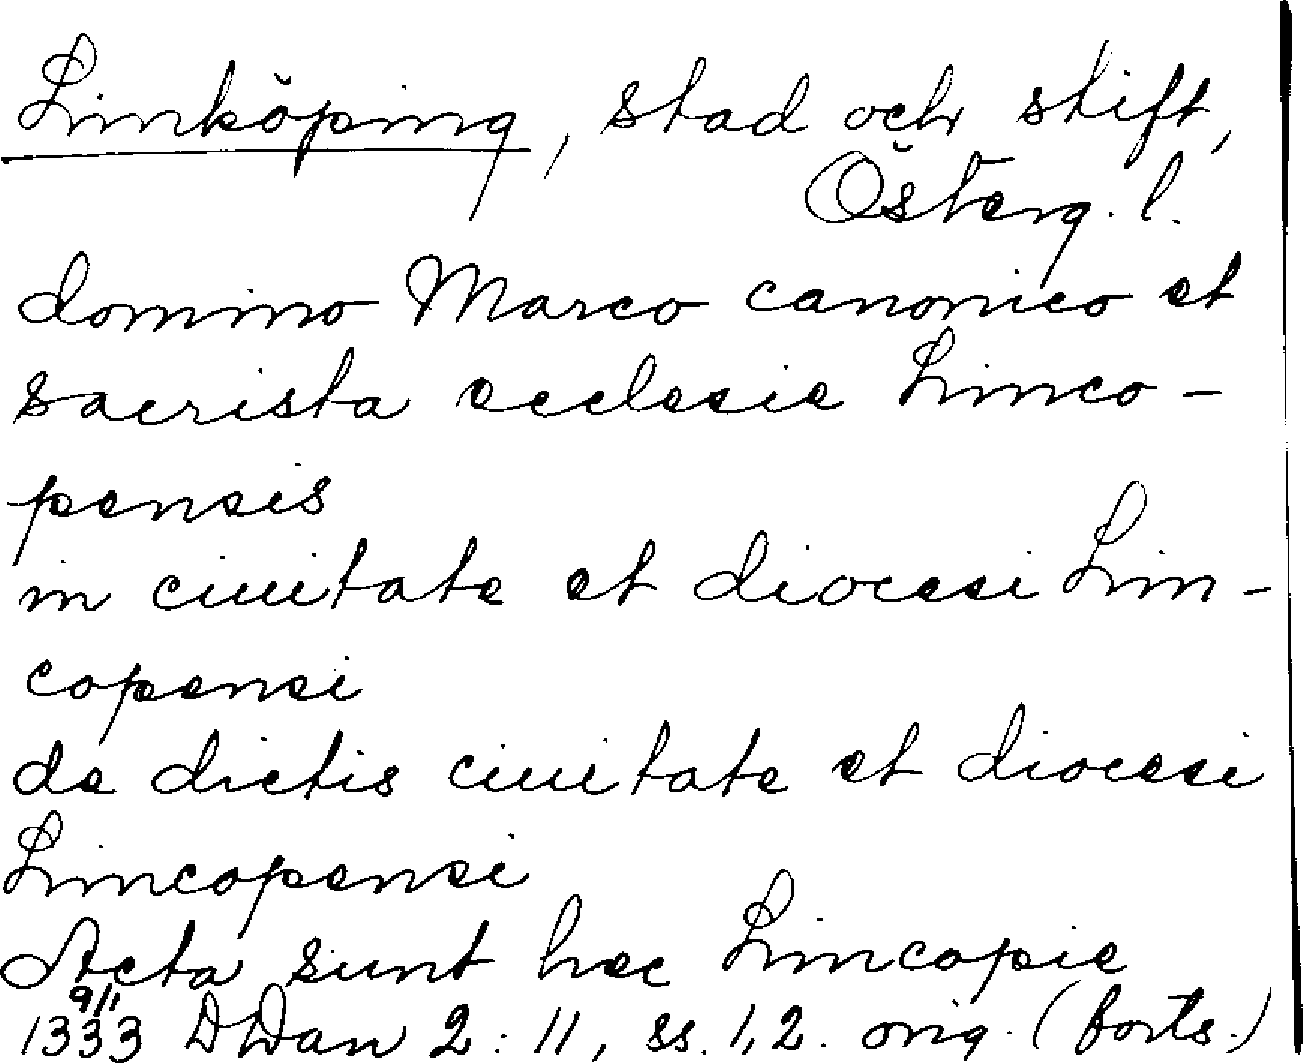 Linköping, stad och stift,
Österg. l.
domino Marco canonico et
sacrista ecclesie Linco-
pensis
in ciuitate et diocesi Lin-
copensi
de dictis ciuitate et diocesi
Lincopensi
Acta sunt hec Lincopie
9/1
1333 DDan 2:11, ss. 1,2. orig. (forts.)